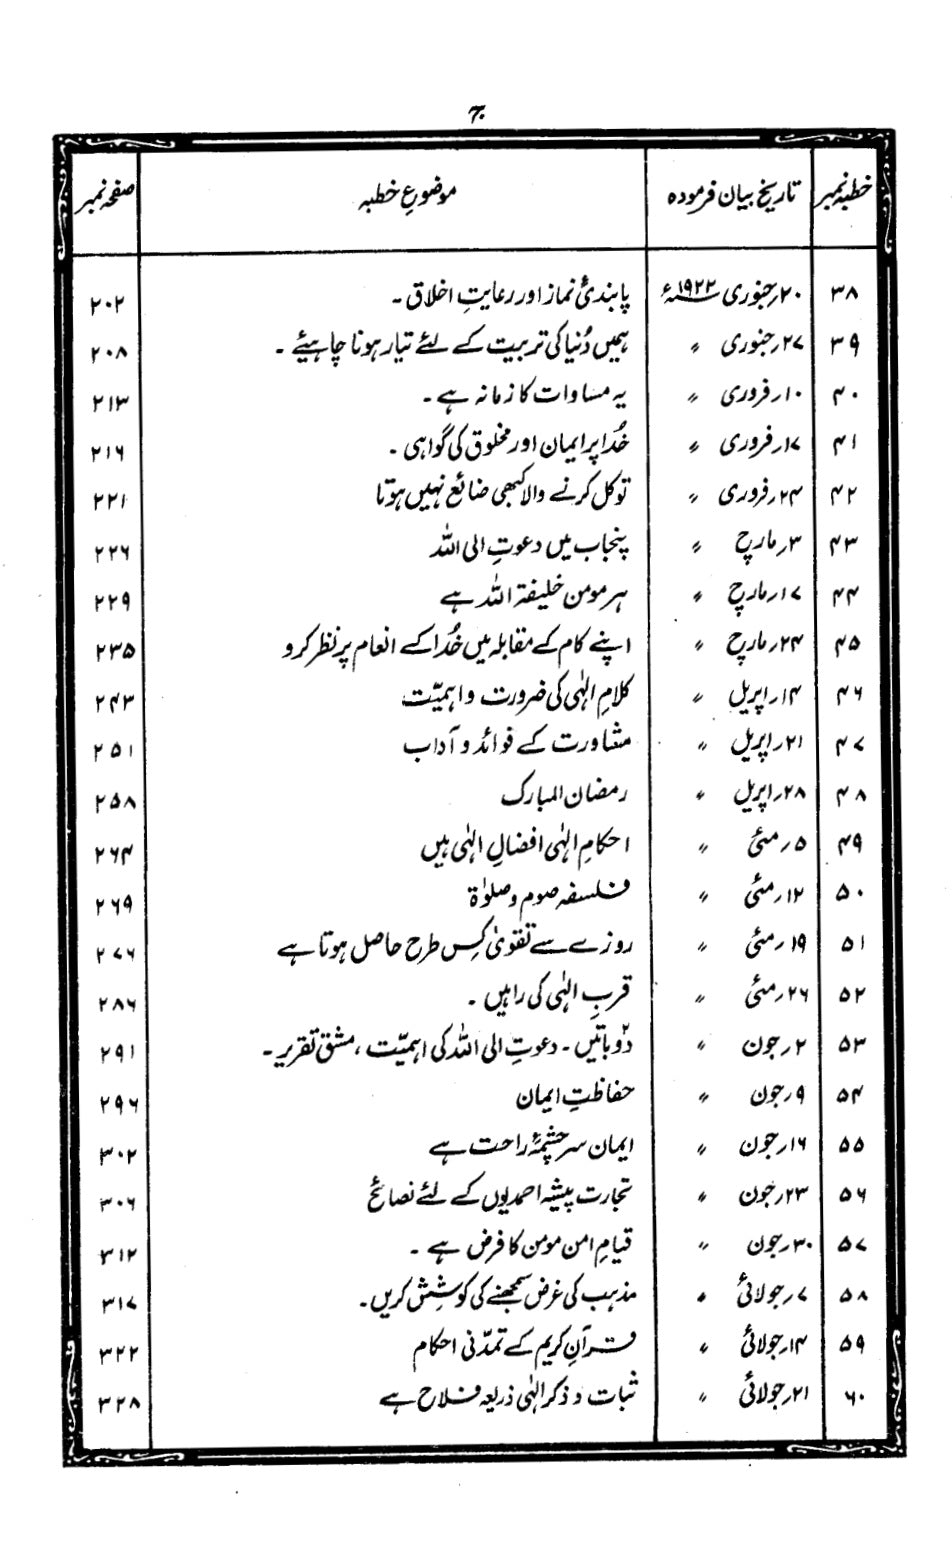 ج
خطبہ نمبر تاریخ بیان فرمودہ موضوعِ خطبہ صفحہ نمبر
۳۸ ۲۰؍جنوری ۱۹۲۲ء پابندیٔ نماز اور رعایتِ اخلاق ۔ ۲۰۲
۳۹ ۲۷؍جنوری 〃 ہمیں دُنیا کی تربیت کے لئے تیار ہونا چاہیئے ۔ ۲۰۸
۴۰ ۱۰؍فروری 〃 یہ مساوات کا زمانہ ہے ۔ ۲۱۳
۴۱ ۱۷؍فروری 〃 خُدا پر ایمان اور مخلوق کی گواہی ۔ ۲۱۶
۴۲ ۲۴؍فروری 〃 توکل کرنے والا کبھی ضائع نہیں ہوتا ۲۲۱
۴۳ ۳؍مارچ 〃 پنجاب میں دعوتِ الی اللہ ۲۲۶
۴۴ ۱۷؍مارچ 〃 ہر مومن خلیفۃ اللہ ہے ۲۲۹
۴۵ ۲۴؍مارچ 〃 اپنے کام کے مقابلہ میں خُدا کے انعام پر نظر کرو ۲۳۵
۴۶ ۱۴؍اپریل 〃 کلامِ الہٰی کی ضرورت و اہمیّت ۲۴۳
۴۷ ۲۱؍اپریل 〃 مشاورت کے فوائد و آداب ۲۵۱
۴۸ ۲۸؍اپریل 〃 رمضان المبارک ۲۵۸
۴۹ ۵؍مئی 〃 احکامِ الہٰی افضالِ الہٰی ہیں ۲۶۴
۵۰ ۱۲؍مئی 〃 فلسفہ صوم و صلوٰۃ ۲۶۹
۵۱ ۱۹؍مئی 〃 روزے سے تقویٰ کِس طرح حاصل ہوتا ہے ۲۷۶
۵۲ ۲۶؍مئی 〃 قربِ الہٰی کی راہیں ۔ ۲۸۶
۵۳ ۲؍جون 〃 دوؔ باتیں ۔ دعوتِ الی اللہ کی اہمیّت ، مشق تقریر ۔ ۲۹۱
۵۴ ۹؍جون 〃 حفاظتِ ایمان ۲۹۶
۵۵ ۱۶؍جون 〃 ایمان سرچشمۂ راحت ہے ۳۰۲
۵۶ ۲۳؍جون 〃 تجارت پیشہ احمدیوں کے لئے نصائح ۳۰۶
۵۷ ۳۰؍جون 〃 قیامِ امن مومن کا فرض ہے ۔ ۳۱۲
۵۸ ۷؍جولائی 〃 مذہب کی غرض سمجھنے کی کوشِش کریں۔ ۳۱۷
۵۹ ۱۴؍جولائی 〃 قرآنِ کریم کے تمدّنی احکام ۳۲۲
۶۰ ۲۱؍جولائی 〃 ثبات و ذکر الہٰی ذریعہ فلاح ہے ۳۲۸